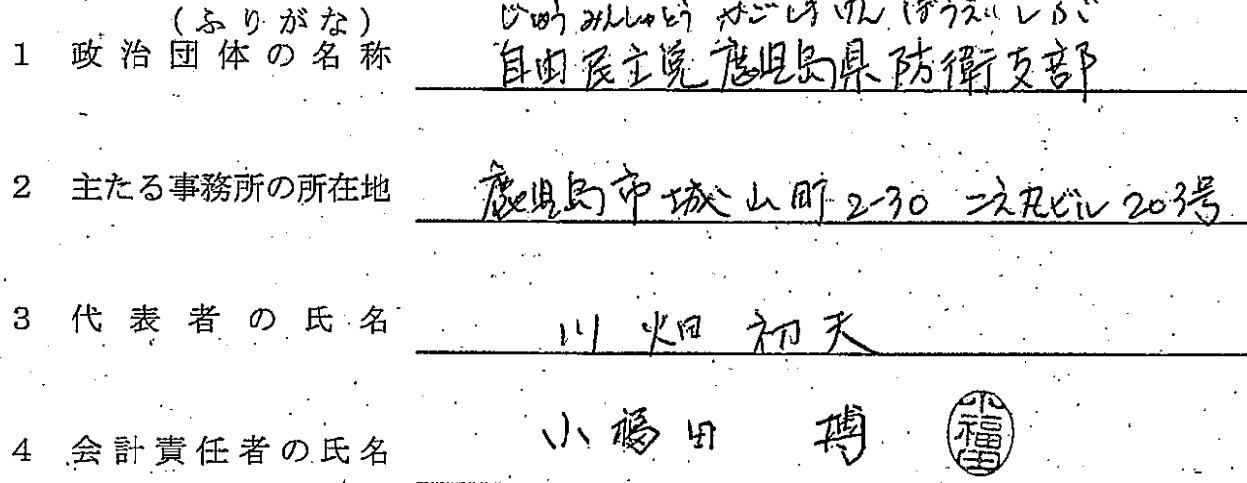 (ふりがな) じゆうみんしゅとう かごしまけん ぼうえい しぶ
1 政治団体の名称 自由民主党鹿児島県防衛支部
2 主たる事務所の所在地 鹿児島市城山町2-30 二之丸ビル203号
3 代表者の氏名 川畑 初夫
4 会計責任者の氏名 小福田 博 小福田